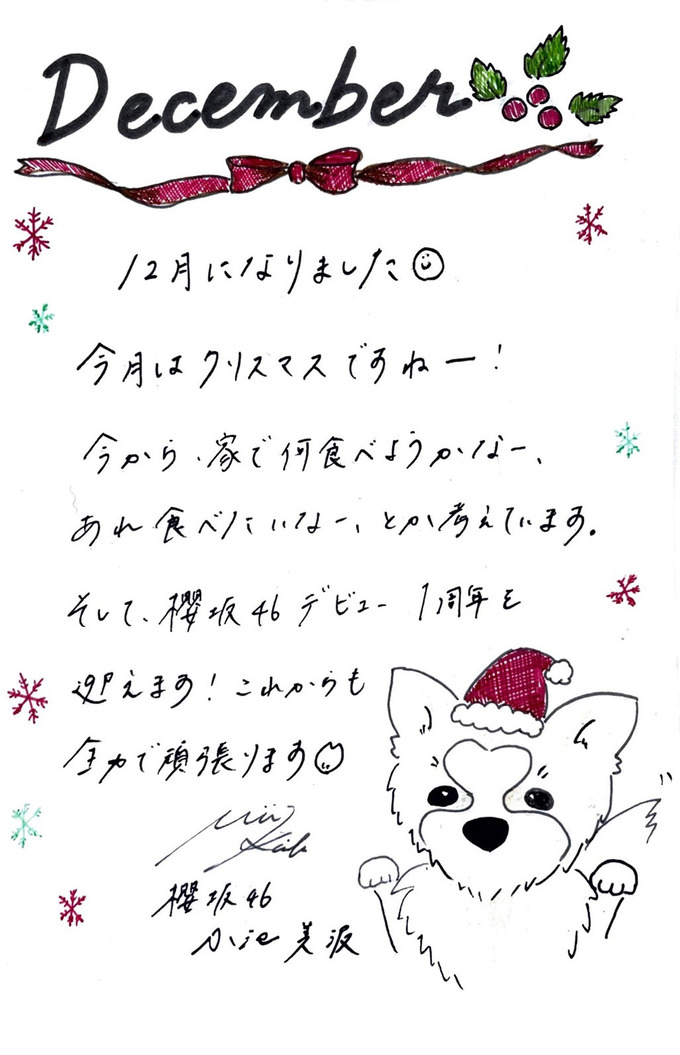 December
12月になりました
今月はクリスマスですねー!
今から、家で何食べようかなー、
あれ食べたいなー、とか考えています。
そして、櫻坂46デビュー1周年を
迎えます!これからも
全力で頑張ります
櫻坂46
小池 美波